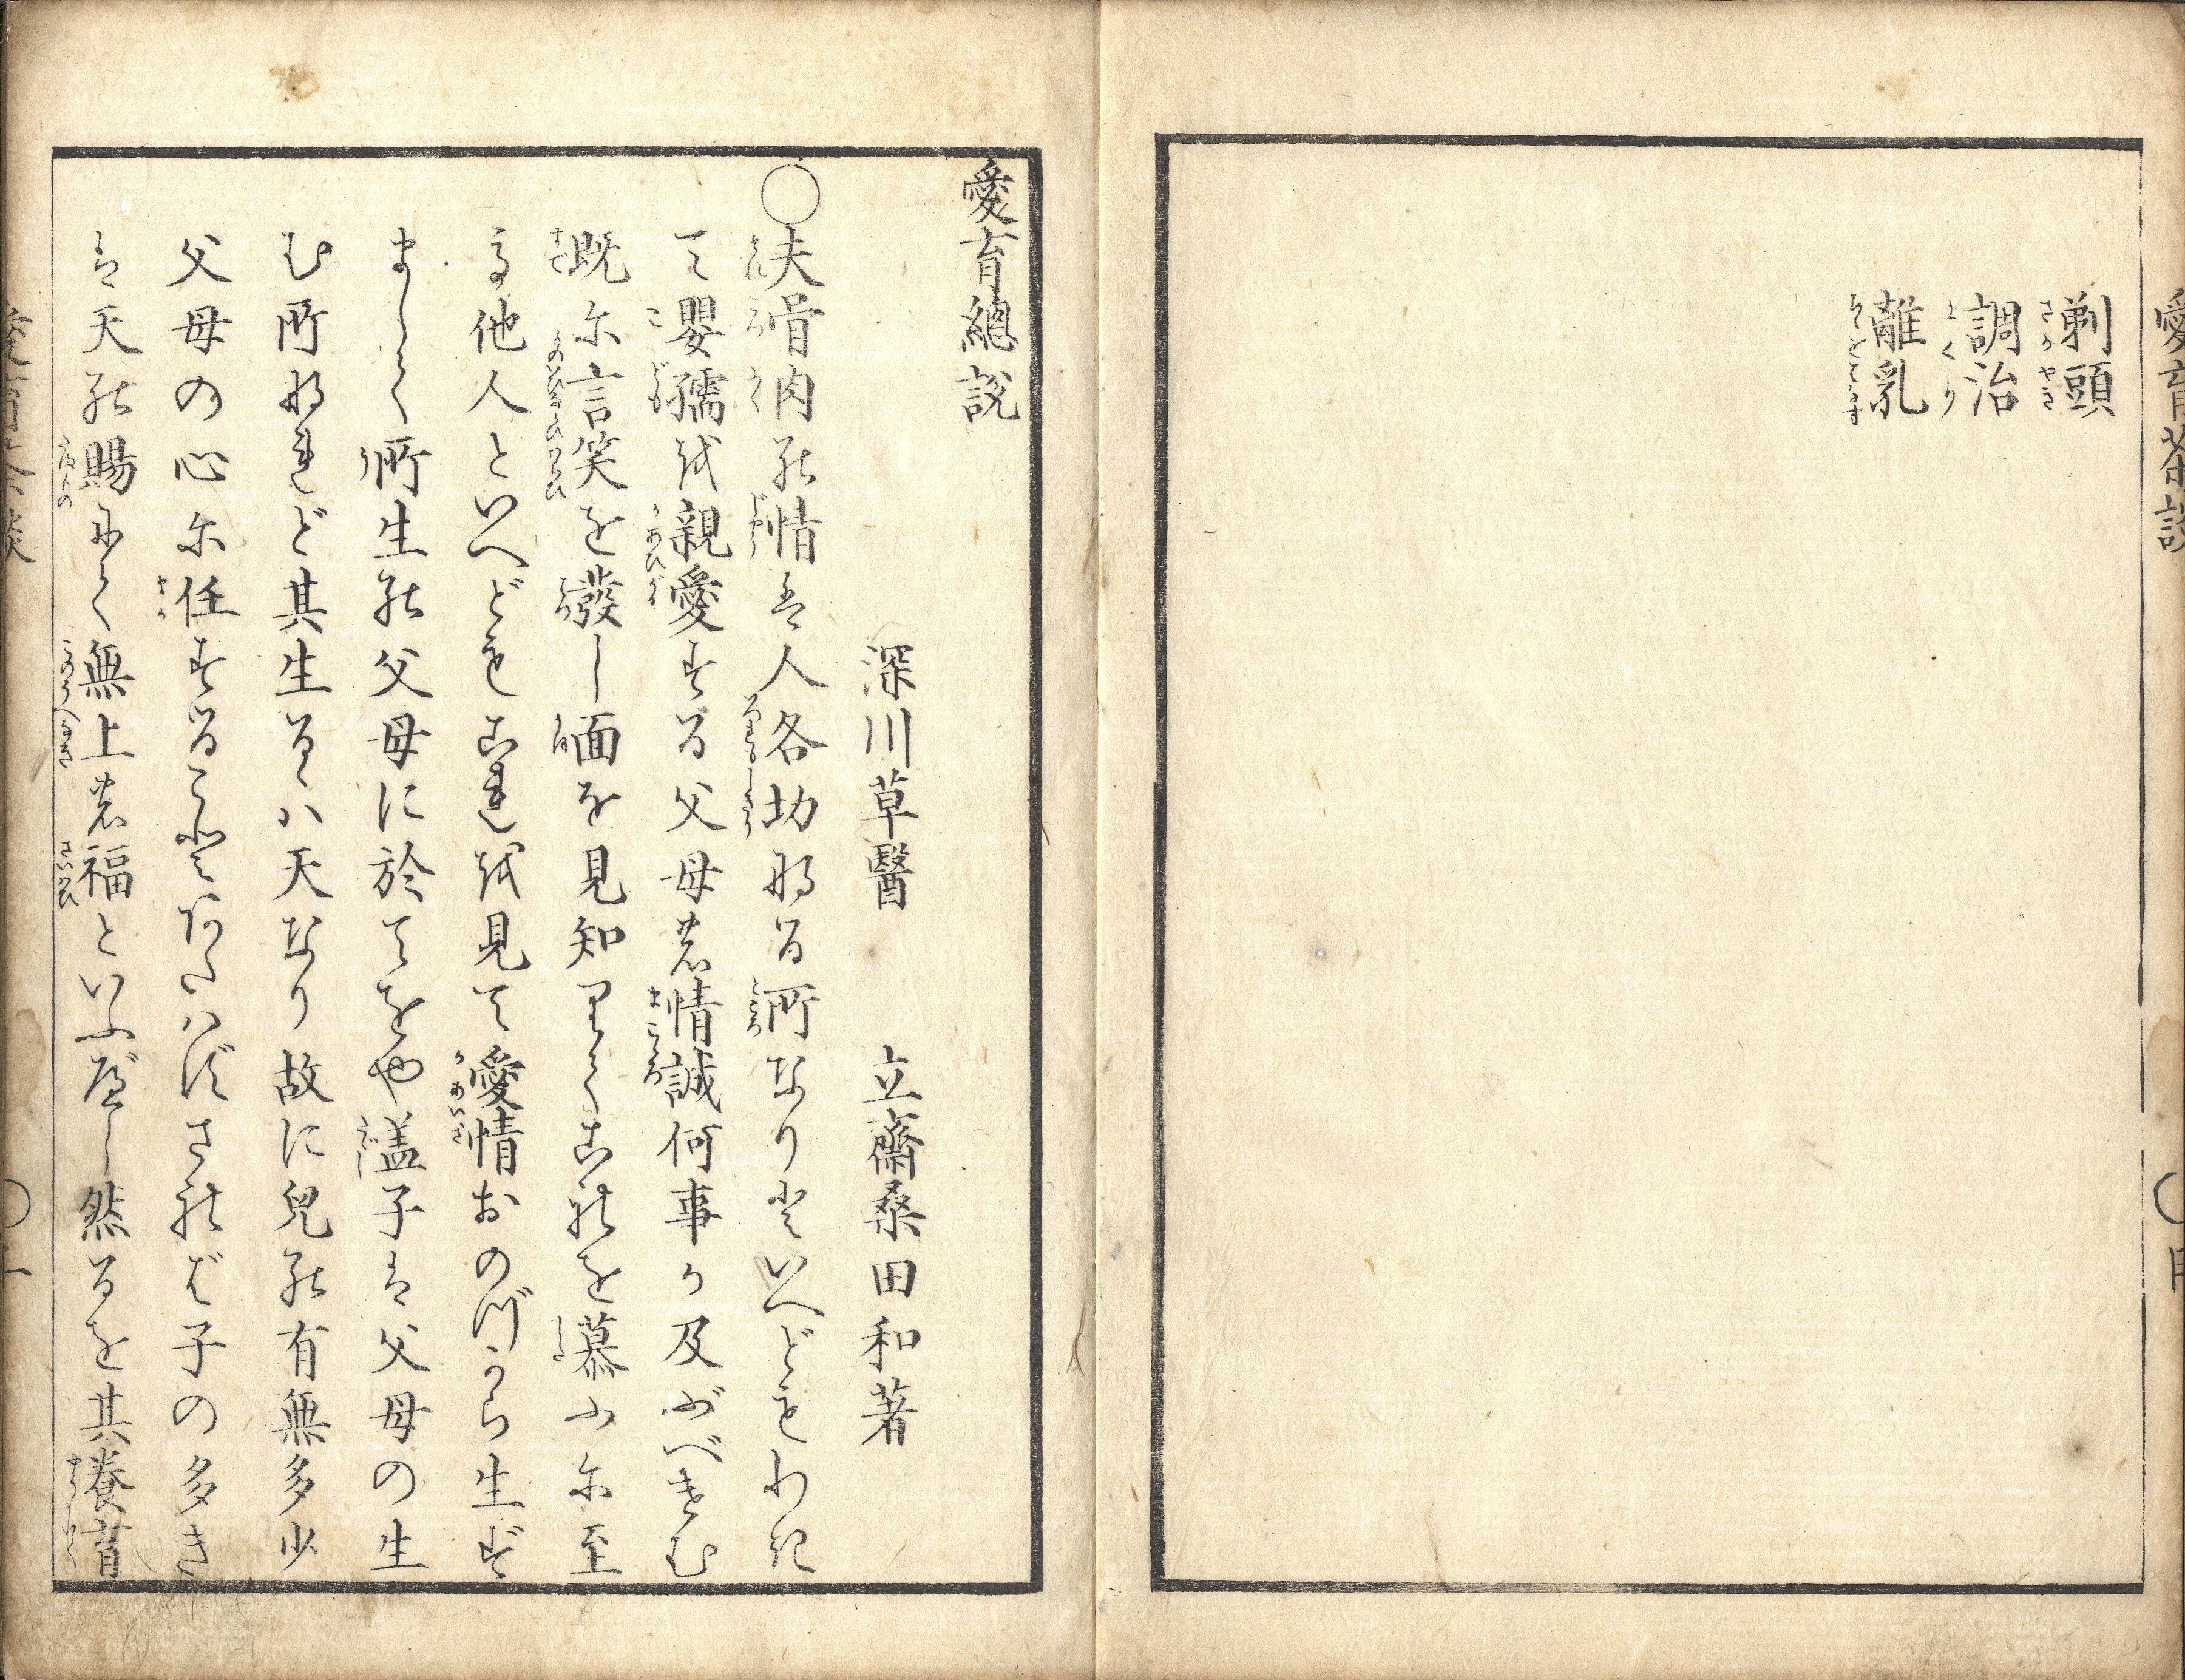 愛育茶談
剃頭
調治
離乳
愛育總説
深川草醫 立齋桑田和著
〇夫骨肉の情は人各切なる所なりといへどもわき
て嬰孺を親愛する父母の情誠何事か及ぶべきむ
既に言笑を發し面を見知りてこれを慕ふに至
る他人といへどもこれを見て愛情おのづから生ず
まして所生の父母に於てをや盖子は父母の生
む所なれど其生るゝハ天なり故に兒の有無多少
父母の心に任することあたハずされば子の多き
は天の賜にて無上の福といふべし然るを其養育